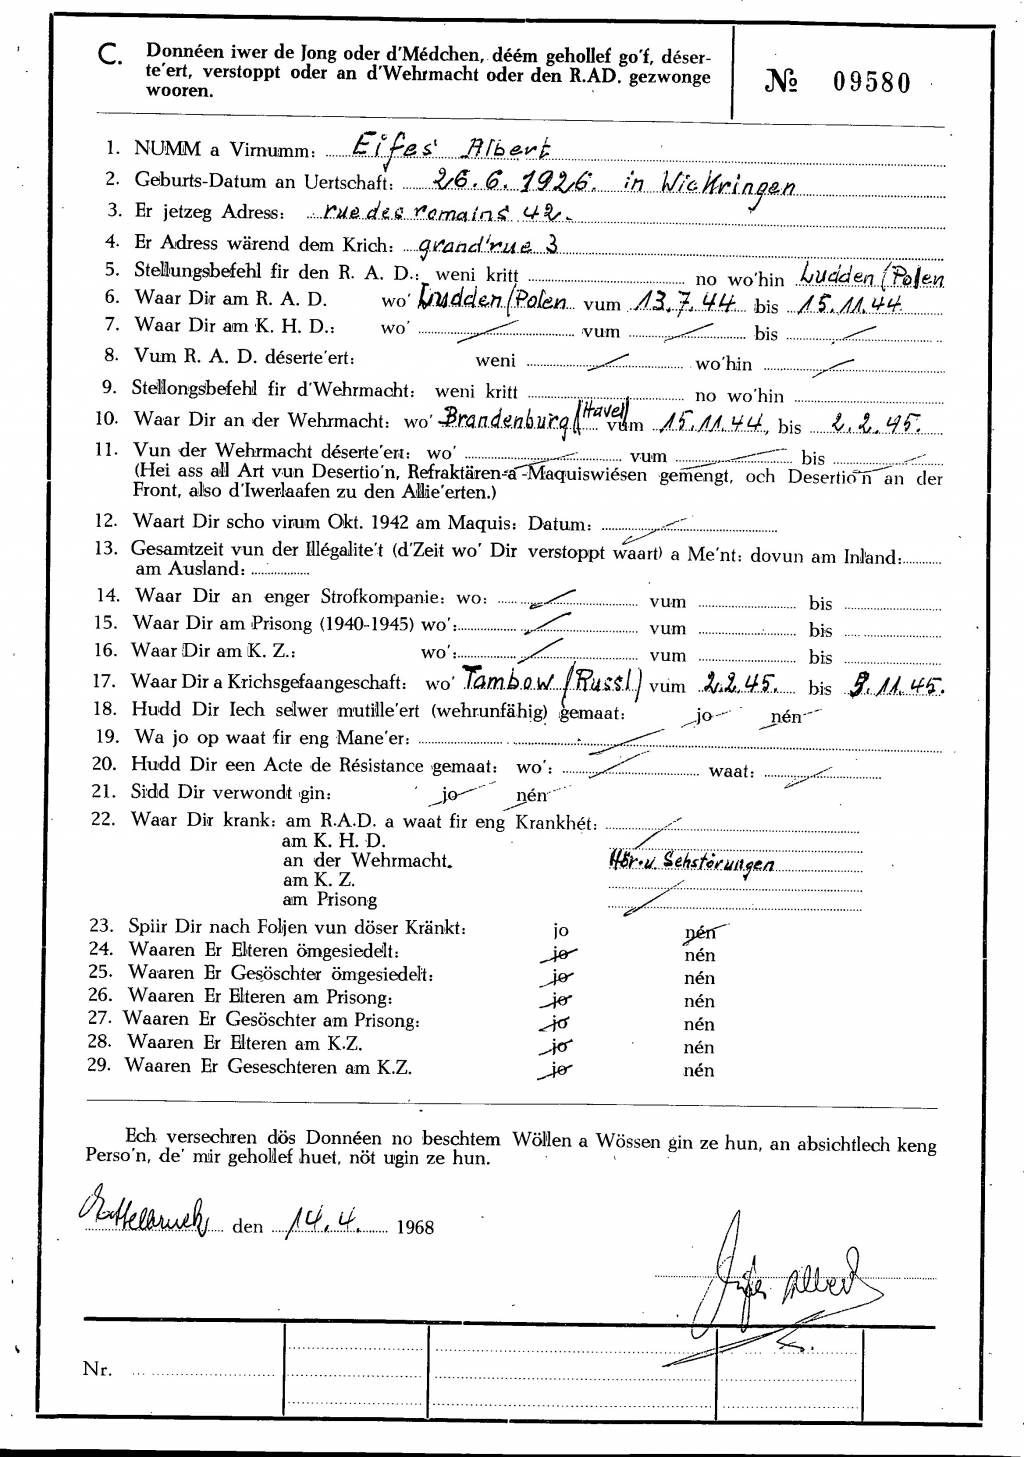 C. Donnéen iwer de Jong oder d'Médchen, déém gehollef go'f, déser-
te'ert, verstoppt oder an d'Wehrmacht oder den R.AD. gezwonge
wooren.
№ 09580
1. NUMM a Virnumm: Eifes Albert
2. Geburts-Datum an Uertschaft: 26.6.1926. in Wickringen
3. Er jetzeg Adress: rue des romains 42.
4. Er Adress wärend dem Krich: grand'rue 3
5. Stellungsbefehl fir den R. A. D.: weni kritt no wo'hin Ludden (Polen
6. Waar Dir am R. A. D. wo' Ludden (Polen vum 13.7.44 bis 15.11.44
7. Waar Dir am K. H. D.: wo' vum bis
8. Vum R. A. D. déserte'ert: weni wo'hin
9. Stellongsbefehl fir d'Wehrmacht: weni kritt no wo'hin
10. Waar Dir an der Wehrmacht: wo' Brandenburg (Havel) vum 15.11.44, bis 2.2.45.
11. Vun der Wehrmacht déserte'ert: wo' vum bis
(Hei ass all Art vun Desertio'n, Refraktären-a -Maquiswiésen gemengt, och Desertio'n an der
Front, also d'Iwerlaafen zu den Allie'erten.)
12. Waart Dir scho virum Okt. 1942 am Maquis: Datum:
13. Gesamtzeit vun der Illégalite't (d'Zeit wo' Dir verstoppt waart) a Me'nt: dovun am Inland:
am Ausland:
14. Waar Dir an enger Strofkompanie: wo: vum bis
15. Waar Dir am Prisong (1940-1945) wo': vum bis
16. Waar Dir am K. Z.: wo': vum bis
17. Waar Dir a Krichsgefaangeschaft: wo' Tambow (Russl) vum 2.2.45. bis 5.11.45.
18. Hudd Dir Iech selwer mutille'ert (wehrunfähig) gemaat: jo nén
19. Wa jo op waat fir eng Mane'er:
20. Hudd Dir een Acte de Résistance gemaat: wo': waat:
21. Sidd Dir verwondt gin: jo nén
22. Waar Dir krank: am R.A.D. a waat fir eng Krankhét:
am K. H. D.
an der Wehrmacht. Hör. u. Sehstörungen
am K. Z.
am Prisong
23. Spiir Dir nach Foljen vun döser Kränkt: jo nén
24. Waaren Er Elteren ömgesiedelt: jo nén
25. Waaren Er Gesöschter ömgesiedelt: jo nén
26. Waaren Er Elteren am Prisong: jo nén
27. Waaren Er Gesöschter am Prisong: jo nén
28. Waaren Er Elteren am K.Z. jo nén
29. Waaren Er Geseschteren am K.Z. jo nén
Ech versechren dös Donnéen no beschtem Wöllen a Wössen gin ze hun, an absichtlech keng
Perso'n, de' mir gehollef huet, nöt ugin ze hun.
den 14.4. 1968
Eifes Albert
Nr.